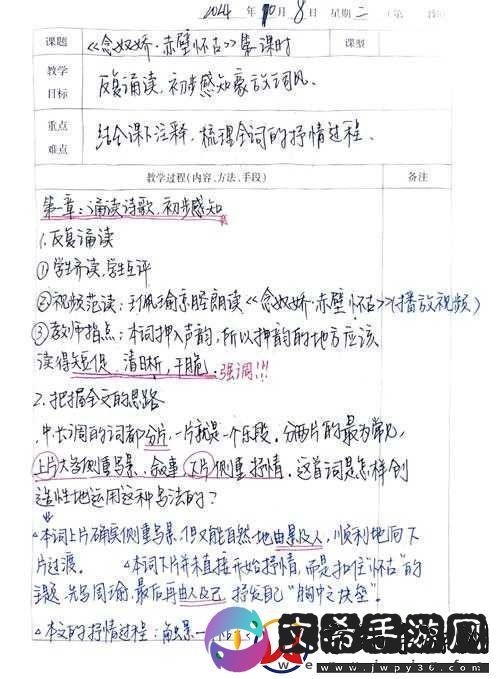 2024 年 10 月 8 日 星期 二 （第
课题 《念奴娇·赤壁怀古》第 课时 课型
教学目标 反复诵读，初步感知豪放词风。
重点难点 结合课下注释，梳理全词的抒情过程。
教学过程(内容、方法、手段) 备注
第一章：诵读诗歌，初步感知
1.反复诵读
①学生齐读，学生点评
②视频范读： 朗读《念奴娇·赤壁怀古》(播放视频)
③教师指点：本词押入声韵，所以押韵的地方应该
读得短促、清晰，干脆。强调!!!
2.把握全文的思路
中长调的词都分片，一片就是一个乐段，分两片的最为常见，
上片大多侧重写景、叙事，下片侧重抒情。这首词是怎样创
造性地运用这种写法的？
本词上片确实侧重写景，但又能自然地由景及人，顺利地向下
片过渡。 本词下片并未直接开始抒情，而是扣住“怀古”的
课题，先写周瑜，最后再由人及己，抒发自己“胸中之块垒”。
本文的抒情过程：
文希手游网
www.jwpy36.com